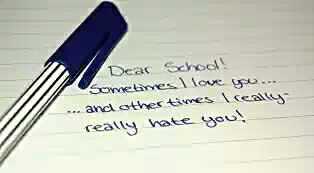 Dear School!
Sometimes I love you...
...and other times I really-
really hate you!